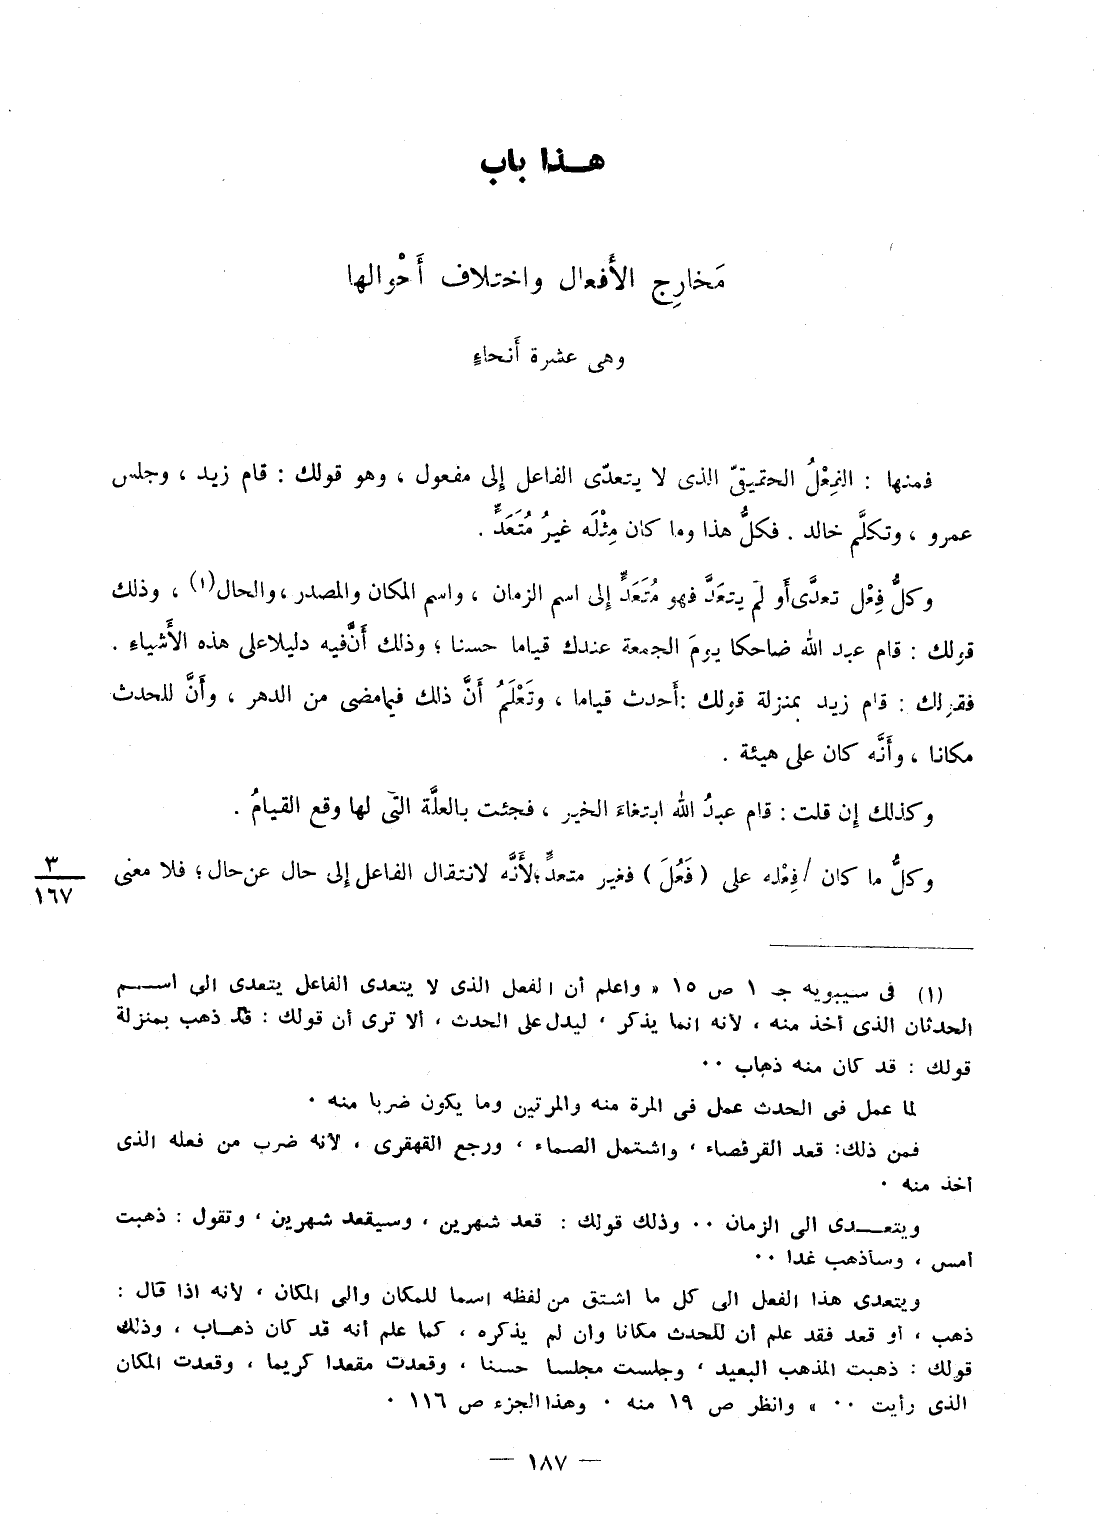 هــذا باب
مَخارِج الأَفعال واختلاف أَحْوالها
وهى عشرة أَنحاءٍ
فمنها : الفِعْلُ الحقيقىّ الذى لا يتعدّى الفاعل إلى مفعول ، وهو قولك : قام زيد ، وجلس
عمرو ، وتكلَّم خالد . فكلُّ هذا وما كان مِثْلَه غيرُ مُتَعَدٍّ .
وكلُّ فِعْل تعدَّى أَو لم يتعَدَّ فهو مُتَعَدٍّ إلى اسم الزمان ، واسم المكان والمصدر ، والحال(١) ، وذلك
قولك : قام عبد الله ضاحكا يومَ الجمعة عندك قياما حسنا ؛ وذلك أَنَّ فيه دليلا على هذه الأَشياءِ .
فقولك : قام زيد بمنزلة قولك : أَحدث قياما ، وتَعْلَمُ أَنَّ ذلك فيما مضى من الدهر ، وأَنَّ للحدث
مكانا ، وأَنَّه كان على هيئة .
وكذلك إِن قلت : قام عبدُ الله ابتغاءَ الخير ، فجئت بالعلَّة التى لها وقع القيامُ .
وكلُّ ما كان / فِعْله على ( فَعُلَ ) فغير متعدٍّ ؛ لأَنَّه لانتقال الفاعل إلى حال عن حال ؛ فلا معنى
٣
١٦٧
(١) فى سيبويه جـ ١ ص ١٥ « واعلم أن الفعل الذى لا يتعدى الفاعل يتعدى الى اســـم
الحدثان الذى أخذ منه ، لأنه انما يذكر ، ليدل على الحدث ، ألا ترى أن قولك : قد ذهب بمنزلة
قولك : قد كان منه ذهاب ..
لما عمل فى الحدث عمل فى المرة منه والمرتين وما يكون ضربا منه .
فمن ذلك: قعد القرفصاء ، واشتمل الصماء ، ورجع القهقرى ، لأنه ضرب من فعله الذى
أخذ منه .
ويتعـــدى الى الزمان .. وذلك قولك : قعد شهرين ، وسيقعد شهرين ، وتقول : ذهبت
أمس ، وسأذهب غدا ..
ويتعدى هذا الفعل الى كل ما اشتق من لفظه اسما للمكان والى المكان ، لأنه اذا قال :
ذهب ، أو قعد فقد علم أن للحدث مكانا وان لم يذكره ، كما علم أنه قد كان ذهــاب ، وذلك
قولك : ذهبت المذهب البعيد ، وجلست مجلسا حسنا ، وقعدت مقعدا كريما ، وقعدت المكان
الذى رأيت .. » وانظر ص ١٩ منه . وهذا الجزء ص ١١٦ .
— ١٨٧ —